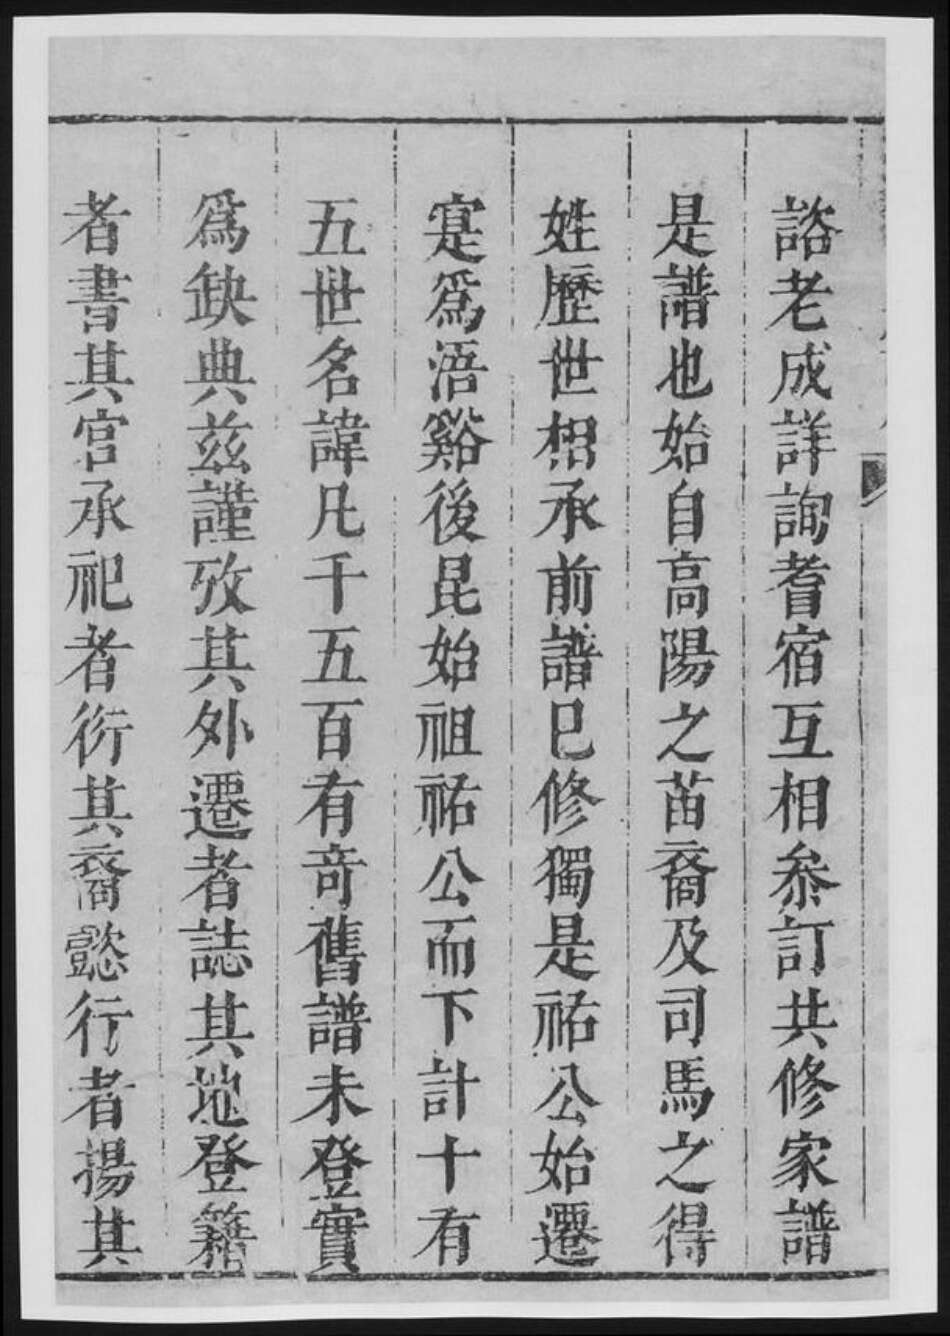 諮老成詳詢耆宿互相叅訂共修家譜
是譜也始自高陽之苗裔及司馬之得
姓歷世相承前譜已修獨是祐公始遷
寔爲浯谿後昆始祖祐公而下計十有
五世名諱凡千五百有奇舊譜未登實
爲缺典兹謹攷其外遷者誌其地登籍
者書其官承祀者衍其裔懿行者揚其